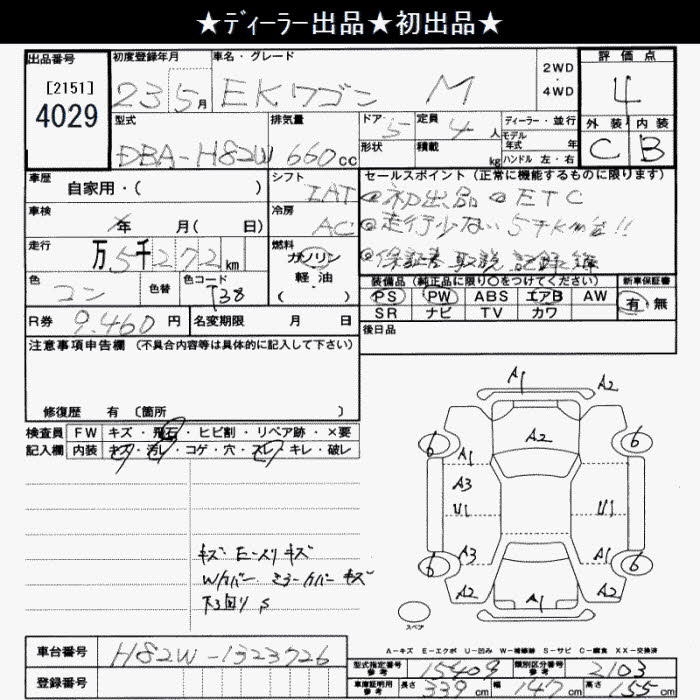 ★ディーラー出品★初出品★
出品番号
[2151]
4029
初度登録年月
23 5月
車名・グレード
EKワゴン M
2WD
・
4WD
評価点
4
外装 内装
C B
型式
DBA-H82W
排気量
660cc
ドア 5
定員 4人
形状
積載 kg
ディーラー・並行
モデル年式 年
ハンドル 左・右
車歴
自家用・( )
シフト
IAT
セールスポイント (正常に機能するものに限ります)
初出品 ETC
走行少ない 5千km台!!
保証書 取説 記録簿
車検
年 月( 日)
冷房
AC
走行
万5千272km
燃料
ガソリン
軽油
( )
色
コン
色替
色コード
T38
装備品 (純正品に限り○をつけてください)
PS PW ABS エアB AW
SR ナビ TV カワ
新車保証書
有 無
R券 9.460円
名変期限 月 日
後日品
注意事項申告欄 (不具合内容等は具体的に記入して下さい)
修復歴 有 〔箇所 〕
検査員記入欄
FW キズ・飛石・ヒビ割・リペア跡・×要
内装 キズ・汚レ・コゲ・穴・スレ・キレ・破レ
キズ Eースリキズ
Wカバー ミラーカバーキズ
下回り S
A1
A2
A2
6
6
A1
A3
U1
U1
A3
A1
6
6
A2
A1
A2
スペア
A-キズ E-エクボ U-凹み W-補修跡 S-サビ C-腐食 XX-交換済
車台番号
H82W-1323726
登録番号
型式指定番号参考 15409
類別区分番号参考 2103
車庫証明用参考 長さ 339cm 幅 147cm 高さ 155cm